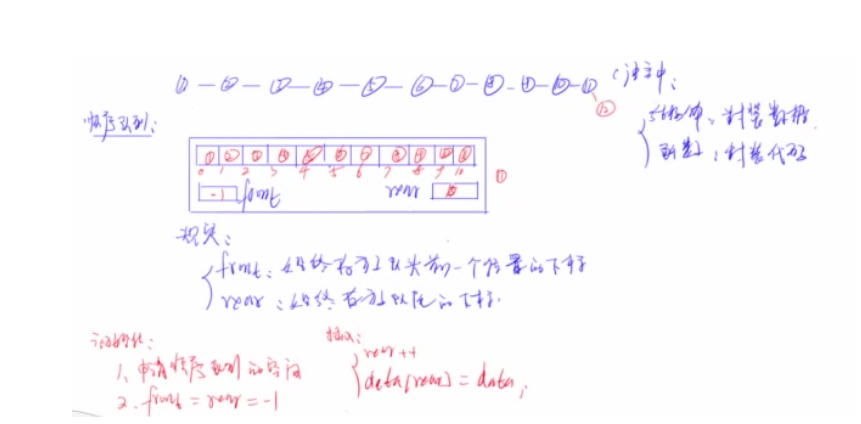 ①—②—③—④—⑤—⑥—⑦—⑧—⑨—⑩—⑪
C语言中:
⑫
结构体:封装数据
函数:封装代码
顺序队列:
① ② ③ ④ ⑤ ⑥ ⑦ ⑧ ⑨ ⑩ ⑪
0 1 2 3 4 5 6 7 8 9 10
-1 front rear 10
规定:
front:始终指向队头前一个位置的下标
rear:始终存放队尾的下标
初始化:
1、申请顺序队列的空间
2. front = rear = -1
插入:
rear++
data[rear] = data;